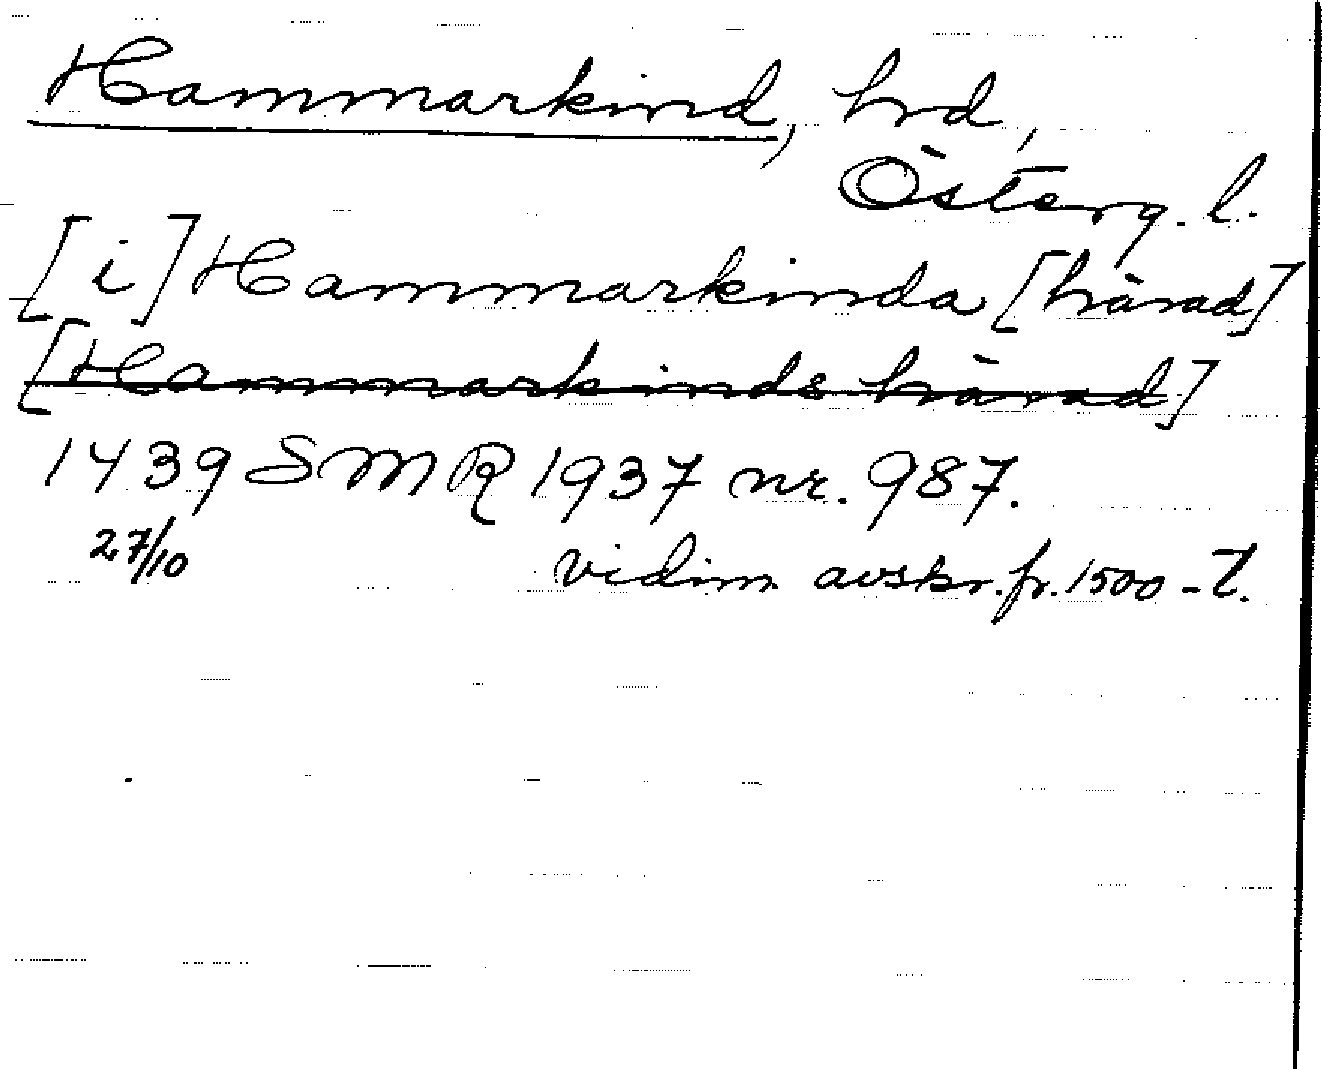 Hammarkind, hrd,
Österg. l.
[i] Hammarkinda [härad]
[Hammarkinds härad]
1439 SMR 1937 nr. 987.
27/10 vidim avskr. fr. 1500-t.